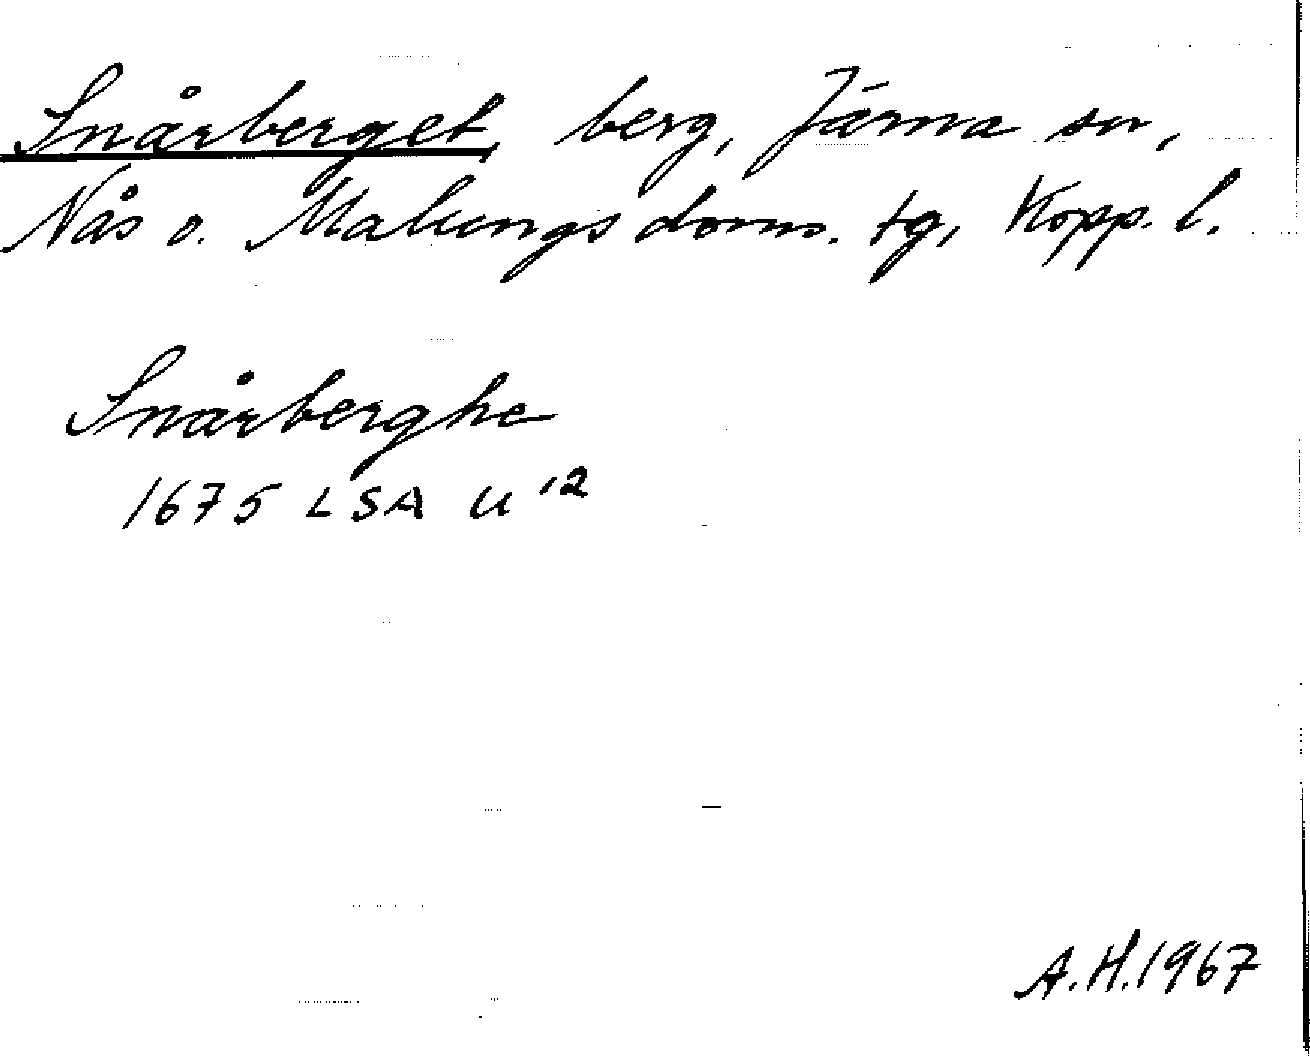 Snårberget, berg, Järna sn,
Nås o. Malungs doms. tg, Kopp. l.
Snårberghe
1675 LSA U 12
A.H.1967